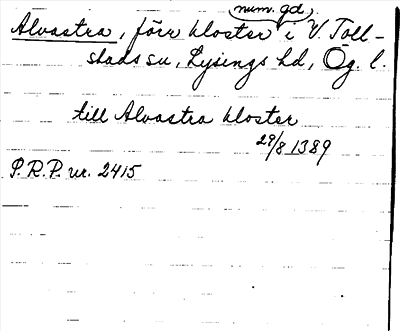 (num. gd.)
Alvastra, förr kloster i V. Toll-
stads sn, Lysings hd, Ög. l.
till Alvastra kloster
29/8 1389
P.R.P. nr. 2415